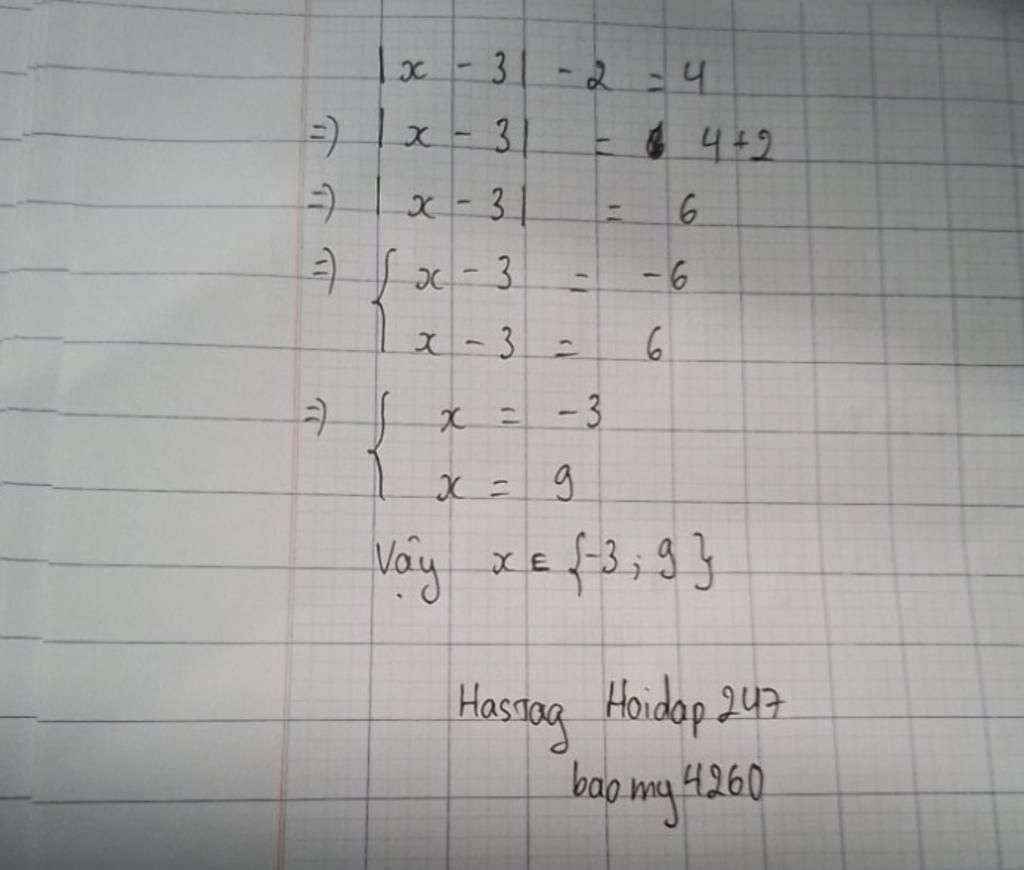 |x - 3| - 2 = 4
=> |x - 3| = 4 + 2
=> |x - 3| = 6
=> { x - 3 = -6
x - 3 = 6
=> { x = -3
x = 9
Vậy x ∈ {-3 ; 9}
Hastag Hoidap 247
bao my 4260